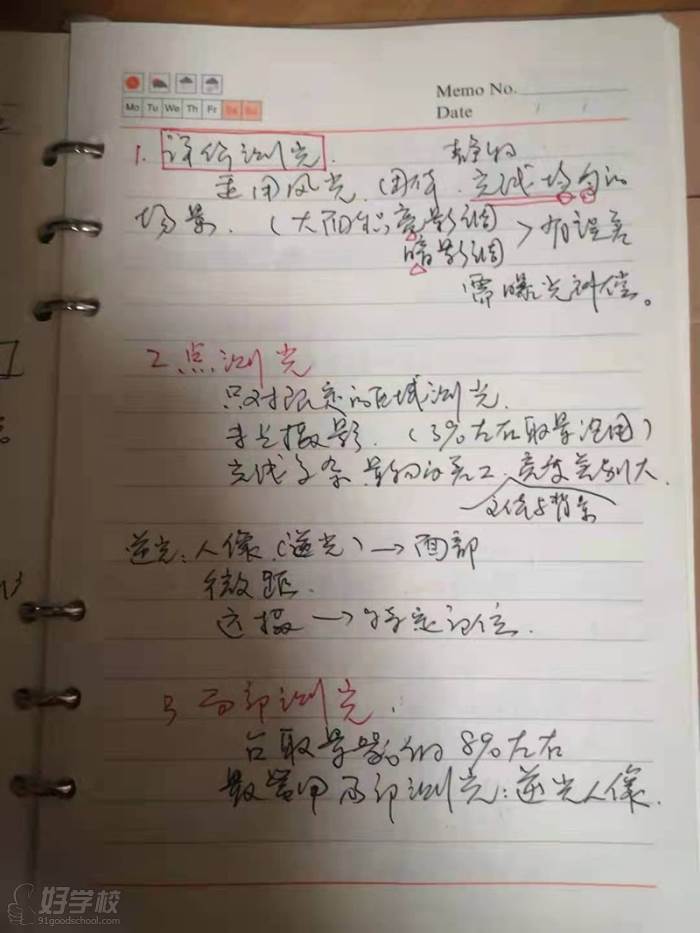 Memo No.
Mo Tu We Th Fr Sa Su
Date / /
1. 评价测光. 静物
适用风光.团体.光线均匀的
场景.(大面积亮影调
暗影调 > 有误差
需曝光补偿。
2.点测光
只对限定的区域测光.
摄影.(3%左右取景范围)
光线复杂 亮度差别大.
主体与背景
逆光:人像(逆光)→面部
微距.
远摄→特定部位.
3 局部测光.
占取景器的8%左右
最常用局部测光:逆光人像.
好学校
91goodschool.com